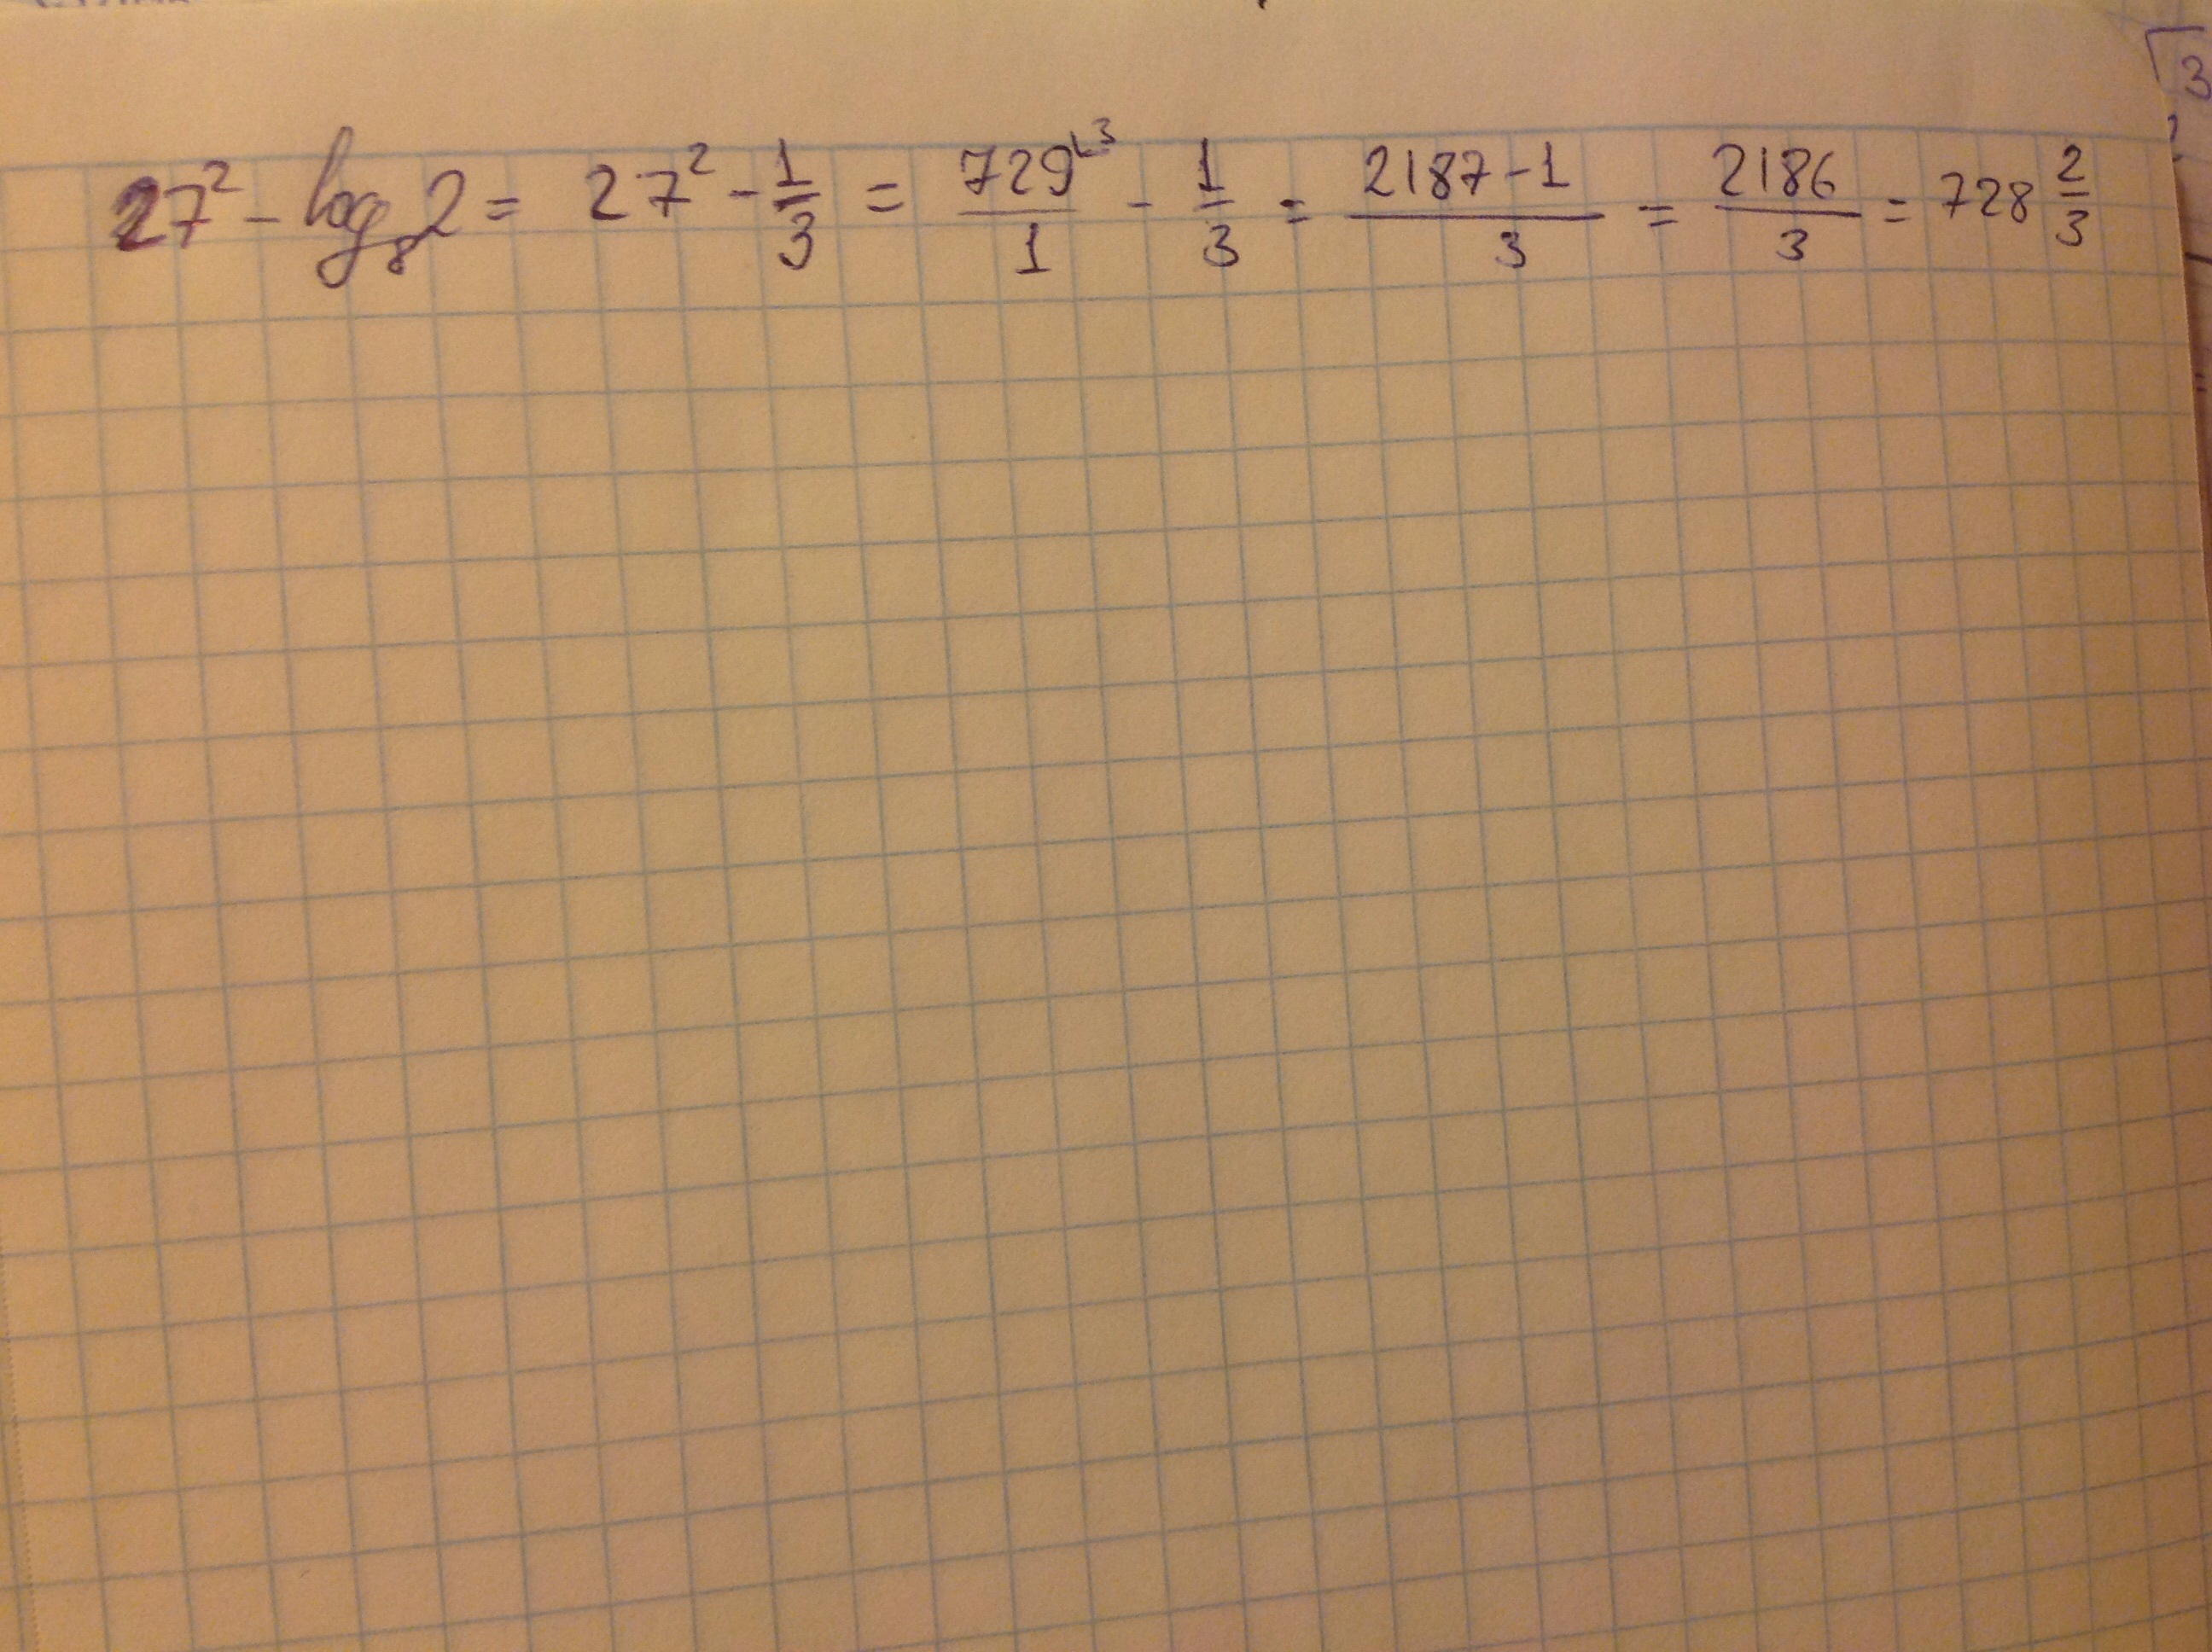 27² - log₈2 = 27² - 1/3 = 729⌞³/1 - 1/3 = 2187-1/3 = 2186/3 = 728 2/3
3